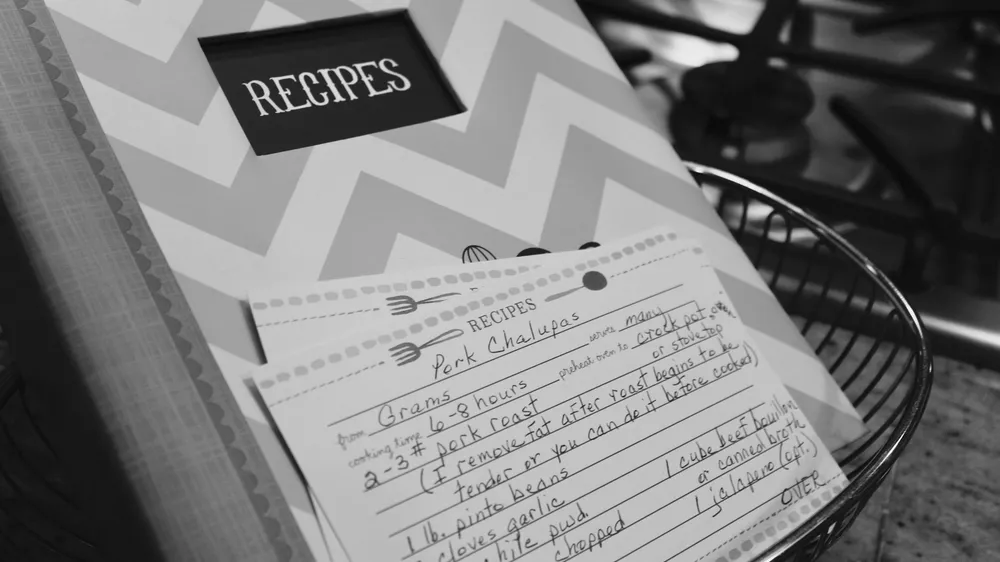 RECIPES
RECIPES
Pork Chalupas
serves many
from Grams
preheat oven to crock pot
or stove top
cooking time 6-8 hours
2-3# pork roast
(I remove fat after roast begins to be
tender or you can do it before cooked)
1 lb. pinto beans
1 cube beef bouillon
cloves garlic
or canned broth
pwd.
1 jalapeno (opt.)
chopped
OVER